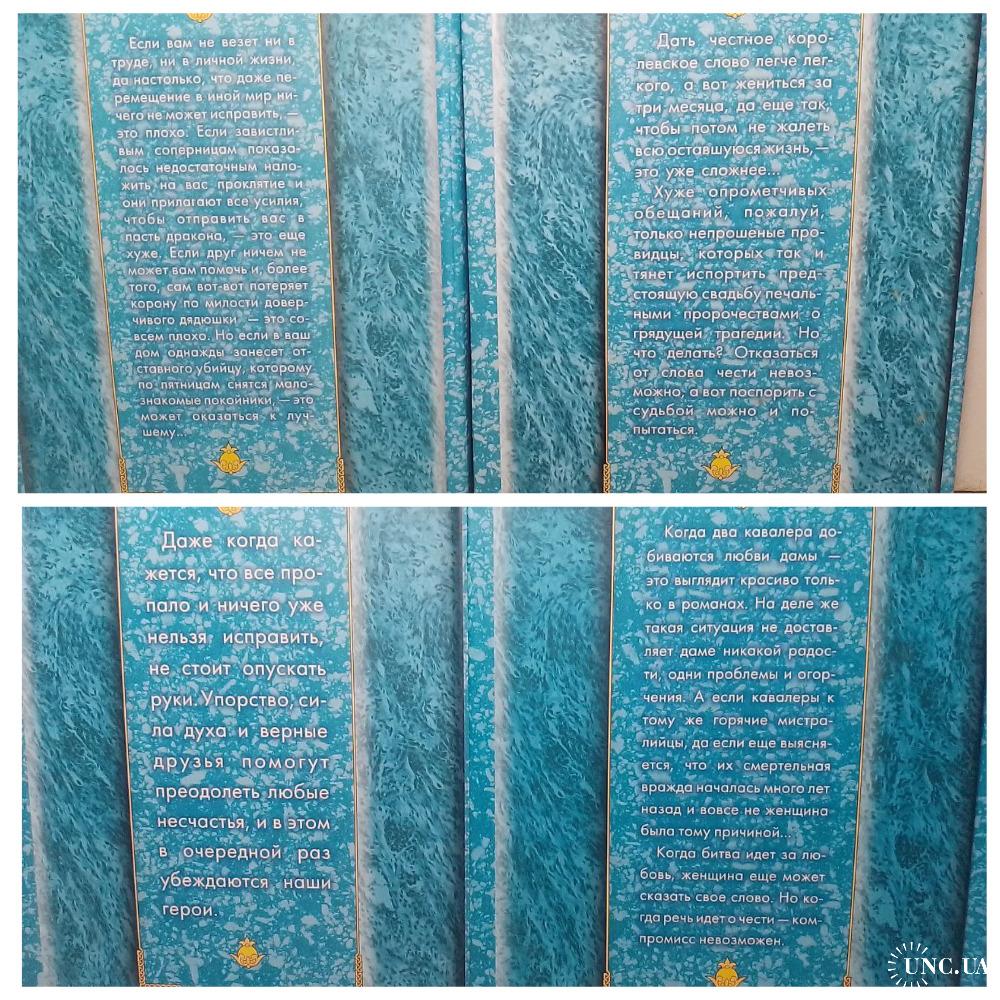 Если вам не везет ни в
труде, ни в личной жизни,
да настолько, что даже пе-
ремещение в иной мир ни-
чего не может исправить, —
это плохо. Если завистли-
вым соперницам показа-
лось недостаточным нало-
жить на вас проклятие и
они прилагают все усилия,
чтобы отправить вас в
пасть дракона, — это еще
хуже. Если друг ничем не
может вам помочь и, более
того, сам вот-вот потеряет
корону по милости довер-
чивого дядюшки — это со-
всем плохо. Но если в ваш
дом однажды занесет от-
ставного убийцу, которому
по пятницам снятся мало-
знакомые покойники, — это
может оказаться к луч-
шему...
Дать честное коро-
левское слово легче лег-
кого, а вот жениться за
три месяца, да еще так,
чтобы потом не жалеть
всю оставшуюся жизнь, —
это уже сложнее...
Хуже опрометчивых
обещаний, пожалуй,
только непрошеные про-
видцы, которых так и
тянет испортить пред-
стоящую свадьбу печаль-
ными пророчествами о
грядущей трагедии. Но
что делать? Отказаться
от слова чести невоз-
можно, а вот поспорить с
судьбой можно и по-
пытаться.
Даже когда ка-
жется, что все про-
пало и ничего уже
нельзя исправить,
не стоит опускать
руки. Упорство, си-
ла духа и верные
друзья помогут
преодолеть любые
несчастья, и в этом
в очередной раз
убеждаются наши
герои.
Когда два кавалера до-
биваются любви дамы —
это выглядит красиво толь-
ко в романах. На деле же
такая ситуация не достав-
ляет даме никакой радос-
ти, одни проблемы и огор-
чения. А если кавалеры к
тому же горячие мистра-
лийцы, да если еще выясня-
ется, что их смертельная
вражда началась много лет
назад и вовсе не женщина
была тому причиной...
Когда битва идет за лю-
бовь, женщина еще может
сказать свое слово. Но ко-
гда речь идет о чести — ком-
промисс невозможен.
UNC.UA